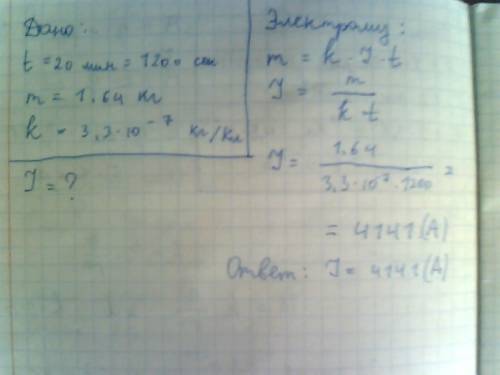 Дано:
t = 20 мин = 1200 сек
m = 1.64 кг
k = 3,3·10⁻⁷ кг/Кл
J = ?
Электролиз:
m = k · J · t
J = m / k t
J = 1.64 / 3,3·10⁻⁷·1200 =
= 4141 (А)
Ответ: J = 4141 (А)